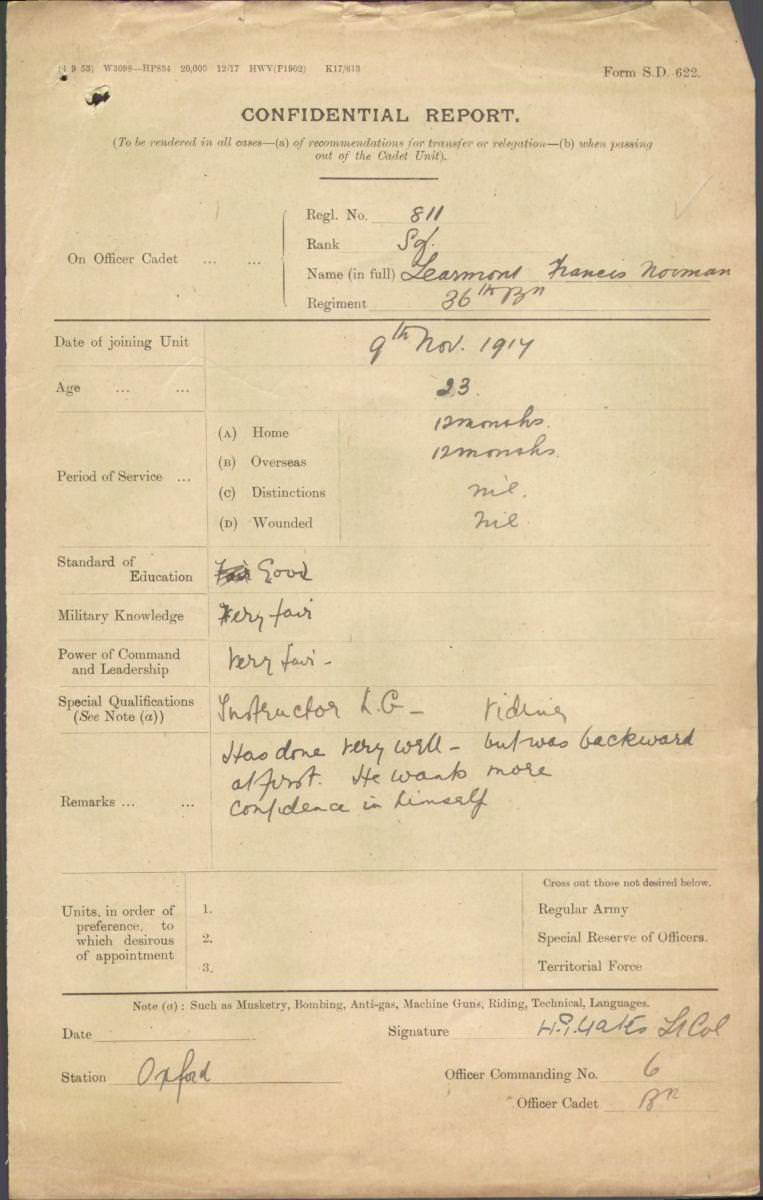 (4 9 53) W3098—HP834 20,000 12/17 HWV(P1902) K17/613
Form S.D. 622.
CONFIDENTIAL REPORT.
(To be rendered in all cases—(a) of recommendations for transfer or relegation—(b) when passing
out of the Cadet Unit).
On Officer Cadet ... ...
Regl. No. 811
Rank
Name (in full) Learmont Francis Norman
Regiment 36th Bn
Date of joining Unit 9th Nov. 1917
Age ... ... 23.
Period of Service ...
(A) Home 12 months.
(B) Overseas 12 months.
(C) Distinctions nil.
(D) Wounded nil
Standard of
Education Good
Military Knowledge Very fair
Power of Command
and Leadership Very fair -
Special Qualifications
(See Note (a)) Instructor L.G - riding
Remarks ... ...
Has done very well - but was backward
at first. He wants more
confidence in himself
Units, in order of
preference, to
which desirous
of appointment
1.
2.
3.
Cross out those not desired below.
Regular Army
Special Reserve of Officers.
Territorial Force
Note (a): Such as Musketry, Bombing, Anti-gas, Machine Guns, Riding, Technical, Languages.
Date
Signature Lt Col
Station Oxford
Officer Commanding No. 6
Officer Cadet Bn